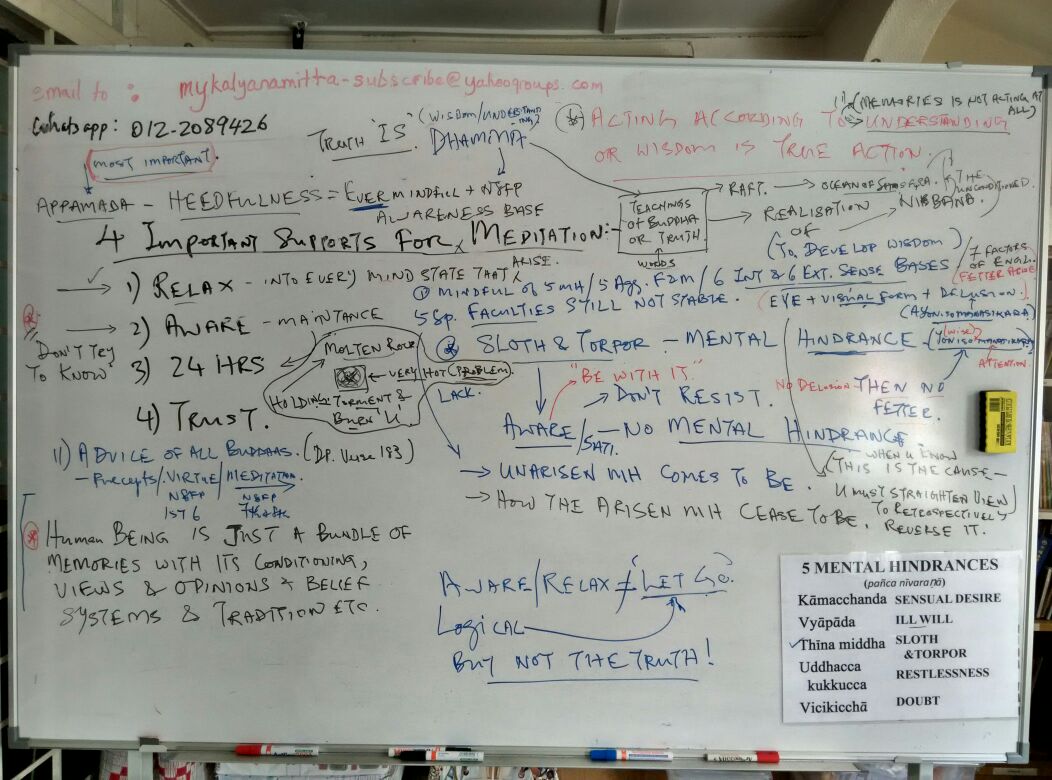 email to : mykalyanamitta-subscribe@yahoogroups.com
Whatsapp: 012-2089426
MOST IMPORTANT.
TRUTH "IS" DHAMMA
(WISDOM/UNDERSTANDING)
ACTING ACCORDING TO UNDERSTANDING
OR WISDOM IS TRUE ACTION.
(MEMORIES IS NOT ACTING AT ALL)
APPAMADA - HEEDFULNESS = EVER MINDFUL + N8FP
AWARENESS BASE
TEACHINGS OF BUDDHA OR TRUTH
WORDS
RAFT. → OCEAN OF SAMSARA.
REALISATION OF NIBBANA.
(THE UNCONDITIONED.
4 IMPORTANT SUPPORTS FOR MEDITATION:-
(TO DEVELOP WISDOM)
1) RELAX - INTO EVERY MIND STATE THAT ARISE.
① MINDFUL OF 5 MH / 5 Agg. F2M / 6 INT & 6 EXT. SENSE BASES / 7 FACTORS OF ENGL.
5 Sp. FACULTIES STILL NOT STABLE.
(FETTER ARISE
(EYE + VISUAL FORM + DELUSION.)
(AYONISOMANASIKARA)
2) AWARE - MAINTANCE
"DON'T TRY TO KNOW"
3) 24 HRS
MOLTEN ROCK
VERY HOT (PROBLEM)
HOLDING: TORMENT & BURN 'U'
4) TRUST.
SLOTH & TORPOR - MENTAL HINDRANCE
(WISE)
YONISOMANASIKARA
ATTENTION.
LACK.
"BE WITH IT."
DON'T RESIST.
NO DELUSION THEN NO FETTER.
AWARE/SATI. - NO MENTAL HINDRANCE.
→ UNARISEN MH COMES TO BE.
→ HOW THE ARISEN MH CEASE TO BE.
WHEN U KNOW
(THIS IS THE CAUSE -
U MUST STRAIGHTEN VIEW
TO RETROSPECTIVELY
REVERSE IT.
11) ADVICE OF ALL BUDDHAS. (DP. VERSE 183)
- Precepts/VIRTUE/MEDITATION
N8FP N8FP
1ST 6 7th & 8th
HUMAN BEING IS JUST A BUNDLE OF
MEMORIES WITH ITS CONDITIONING,
VIEWS & OPINIONS & BELIEF
SYSTEMS & TRADITION ETC.
AWARE/RELAX ≠ 'LET GO'.
LOGICAL
BUT NOT THE TRUTH!
5 MENTAL HINDRANCES
(pañca nīvaraṇā)
Kāmacchanda SENSUAL DESIRE
Vyāpāda ILL WILL
Thīna middha SLOTH & TORPOR
Uddhacca kukkucca RESTLESSNESS
Vicikicchā DOUBT